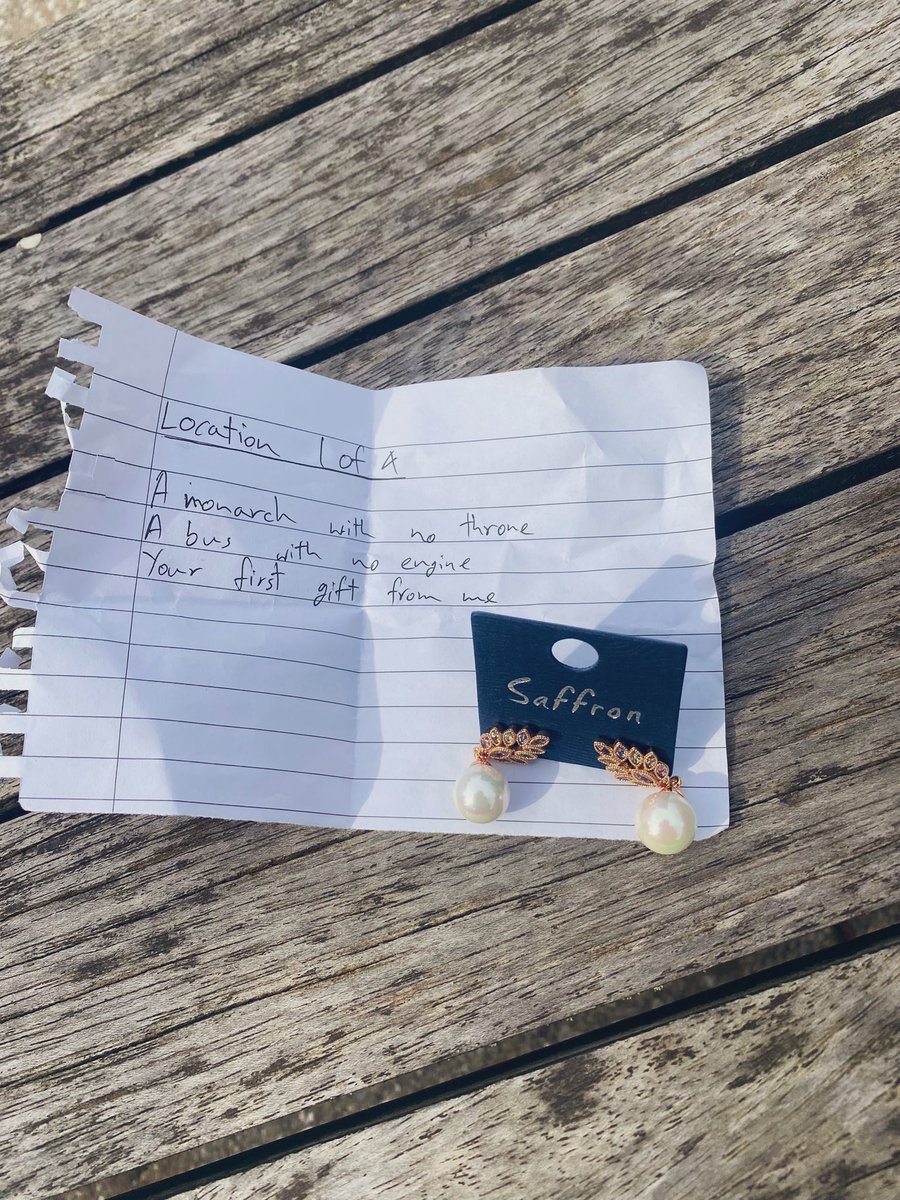 Location 1 of 4
A monarch with no throne
A bus with no engine
Your first gift from me
Saffron